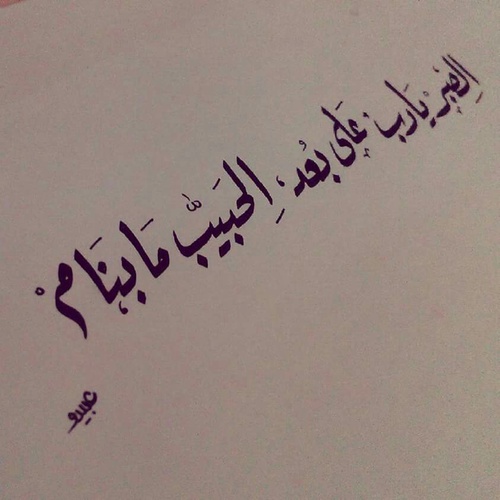 الصبر يارب على بعد الحبيب ما بنام
عبير